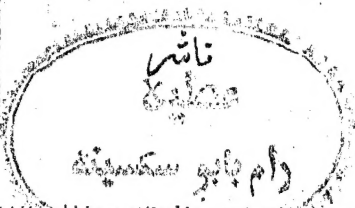 ناشر
رام بابو سکسینہ